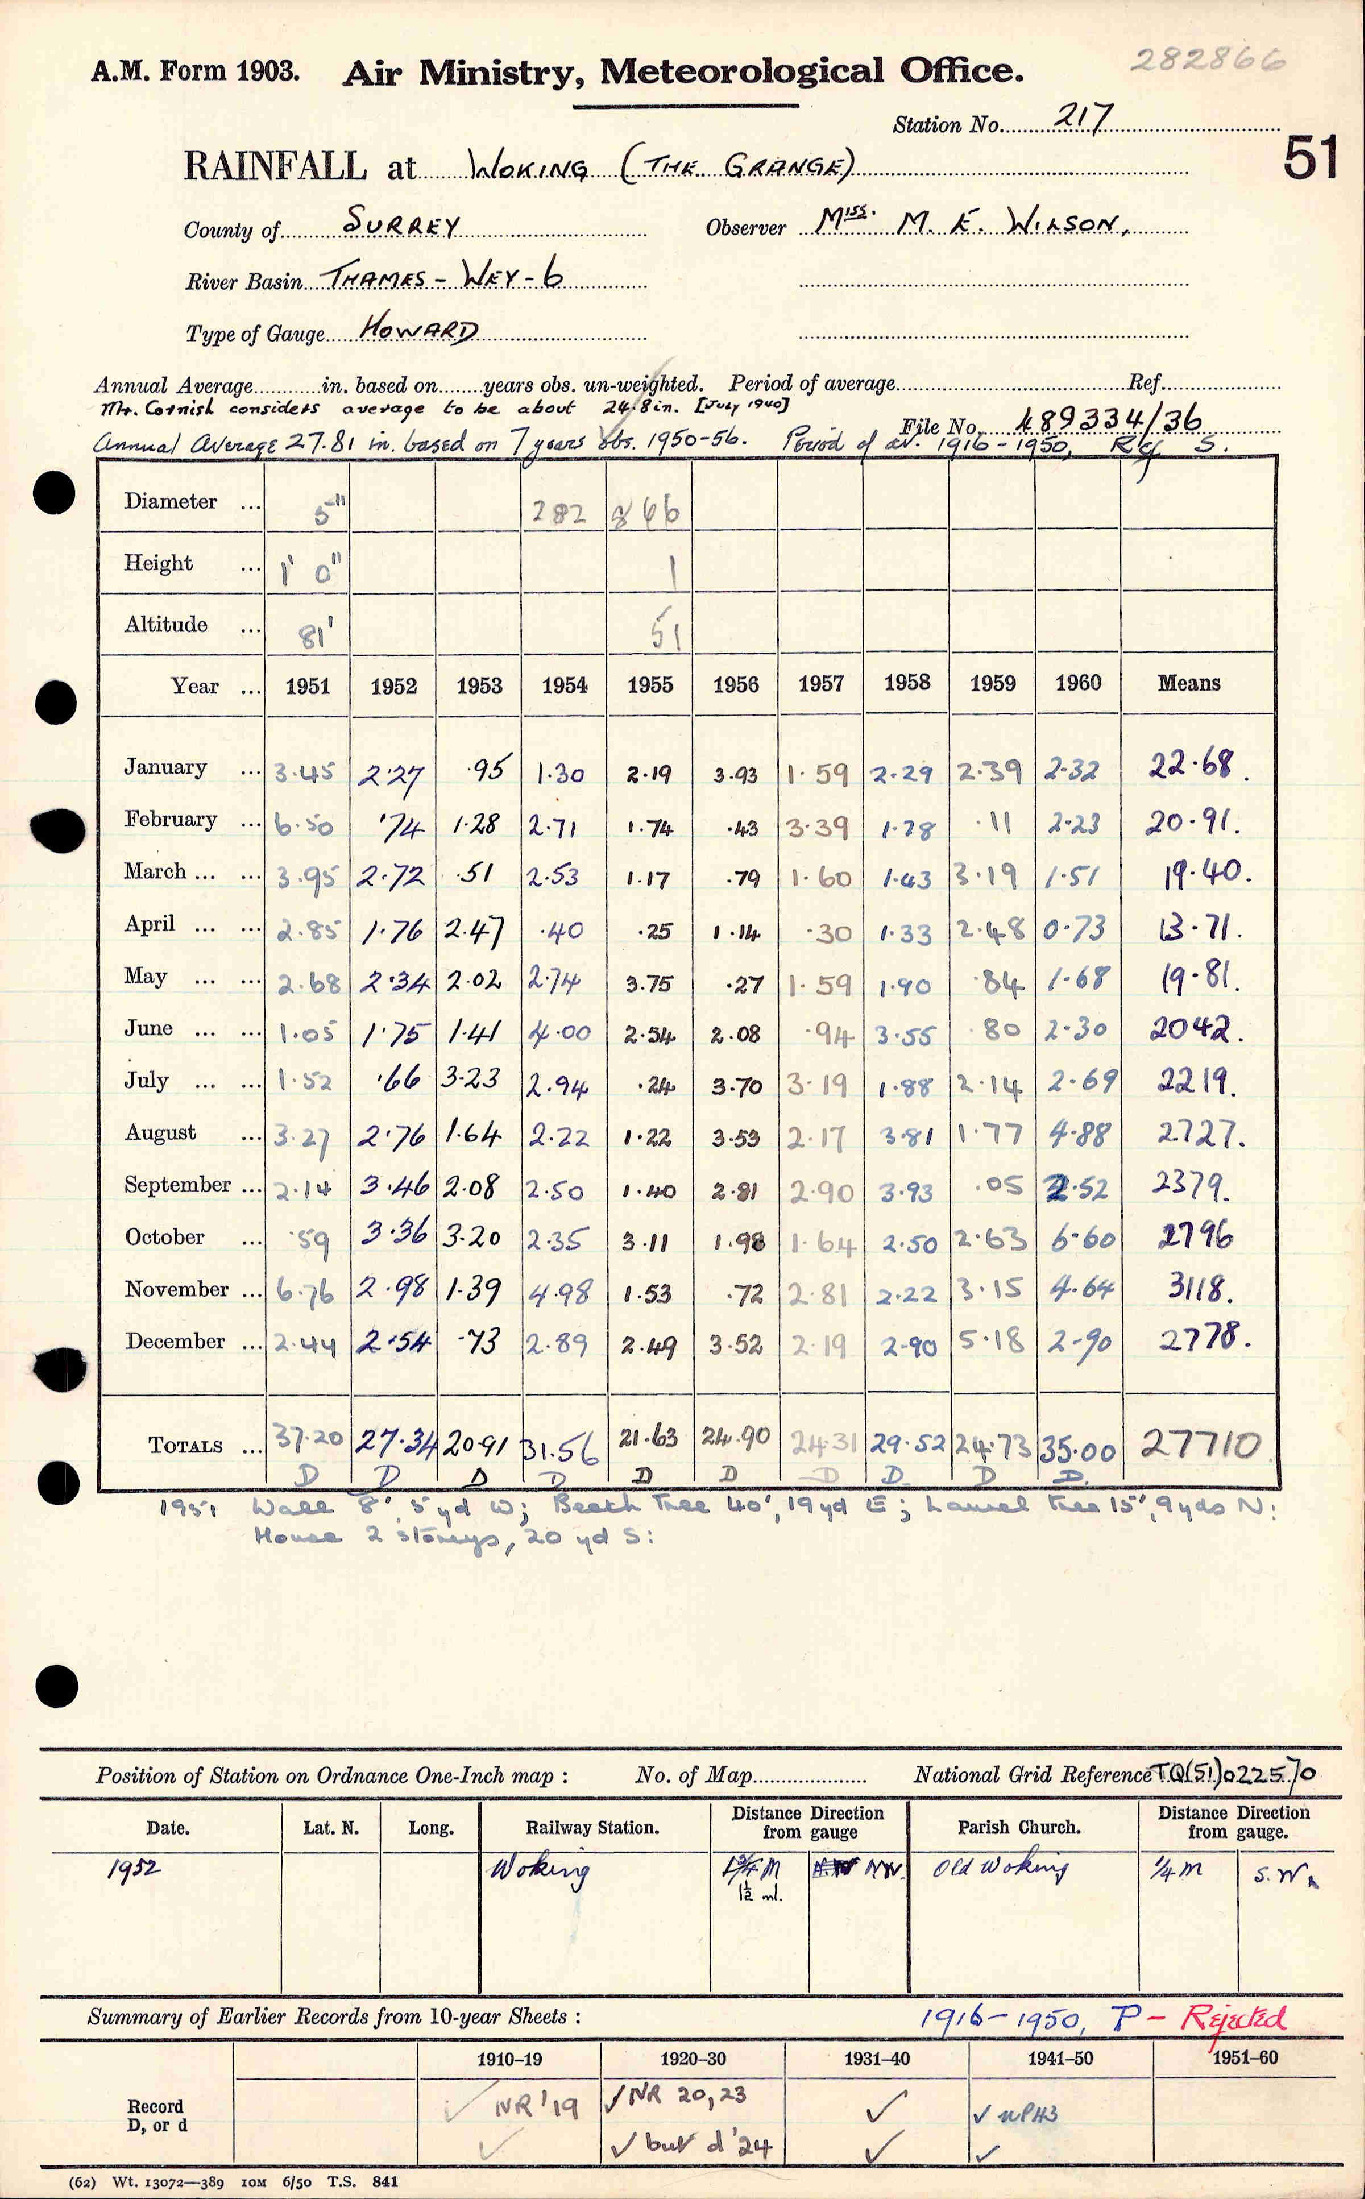 282866
A.M. Form 1903. Air Ministry, Meteorological Office.
Station No. 217
51
RAINFALL at WOKING (THE GRANGE)
County of SURREY Observer Miss. M. E. WILSON,
River Basin THAMES - WEY - 6
Type of Gauge HOWARD
Annual Average in. based on years obs. un-weighted. Period of average Ref.
Mr. Cornish considers average to be about 24.8in. [July 1940]
File No. 489334/36
Annual Average 27.81 in. based on 7 years obs. 1950-56. Period of av. 1916-1950, Ref S.
Diameter ... 5" 282 866
Height ... 1' 0" 1
Altitude ... 81' 51
Year ... 1951 1952 1953 1954 1955 1956 1957 1958 1959 1960 Means
January ... 3.45 2.27 .95 1.30 2.19 3.93 1.59 2.29 2.39 2.32 22.68.
February ... 6.50 .74 1.28 2.71 1.74 .43 3.39 1.78 .11 2.23 20.91.
March ... ... 3.95 2.72 .51 2.53 1.17 .79 1.60 1.43 3.19 1.51 19.40.
April ... ... 2.85 1.76 2.47 .40 .25 1.14 .30 1.33 2.48 0.73 13.71.
May ... ... 2.68 2.34 2.02 2.74 3.75 .27 1.59 1.90 .84 1.68 19.81.
June ... ... 1.05 1.75 1.41 4.00 2.54 2.08 .94 3.55 .80 2.30 2042.
July ... ... 1.52 .66 3.23 2.94 .24 3.70 3.19 1.88 2.14 2.69 2219.
August ... 3.27 2.76 1.64 2.22 1.22 3.53 2.17 3.81 1.77 4.88 2727.
September ... 2.14 3.46 2.08 2.50 1.40 2.81 2.90 3.93 .05 2.52 2379.
October ... .59 3.36 3.20 2.35 3.11 1.98 1.64 2.50 2.63 6.60 2796
November ... 6.76 2.98 1.39 4.98 1.53 .72 2.81 2.22 3.15 4.64 3118.
December ... 2.44 2.54 .73 2.89 2.49 3.52 2.19 2.90 5.18 2.90 2778.
TOTALS ... 37.20 27.34 20.91 31.56 21.63 24.90 24.31 29.52 24.73 35.00 27710
D D D D D D D D D D.
1951 Wall 8', 5 yd W; Beech Tree 40', 19 yd E; Laurel tree 15', 9 yds N:
House 2 storeys, 20 yd S:
Position of Station on Ordnance One-Inch map : No. of Map National Grid Reference TQ(51)022570
Date. Lat. N. Long. Railway Station. Distance Direction from gauge Parish Church. Distance Direction from gauge.
1952 Woking 1¾ M NW. Old Woking ¼ M S.W.
1½ ml.
Summary of Earlier Records from 10-year Sheets : 1916-1950, P - Rejected
1910-19 1920-30 1931-40 1941-50 1951-60
Record ✓ NR '19 ✓ NR 20, 23 ✓ ✓
D, or d ✓ ✓ but d '24 ✓ ✓
(62) Wt. 13072—389 10M 6/50 T.S. 841